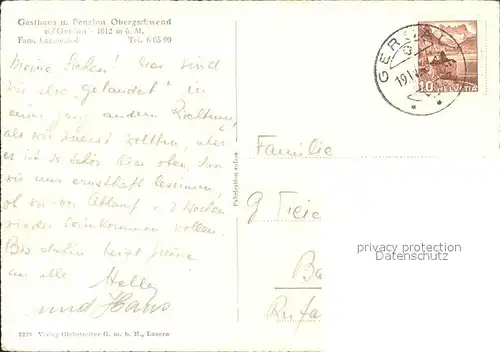 Gasthaus u. Pension Obergschwend
o/Gersau - 1012 m ü. M.
Fam. Tel. 6 65 90
Meine Lieben! Hier sind
wir also „gelandet" in
einer ganz andern Richtung,
als wir zuerst wollten, aber
es ist so schön hier oben, dass
wir uns ernsthaft besinnen,
ob wir vor Ablauf v. 2 Wochen
wieder heimkommen wollen.
Bis dahin herzl. Grüsse
an alle Helly
und Hans
9229 Verlag Globetrotter G. m. b. H., Luzern
Fabrication suisse
GERSAU
10 HELVETIA
Familie
G
Ba
privacy protection
watermark